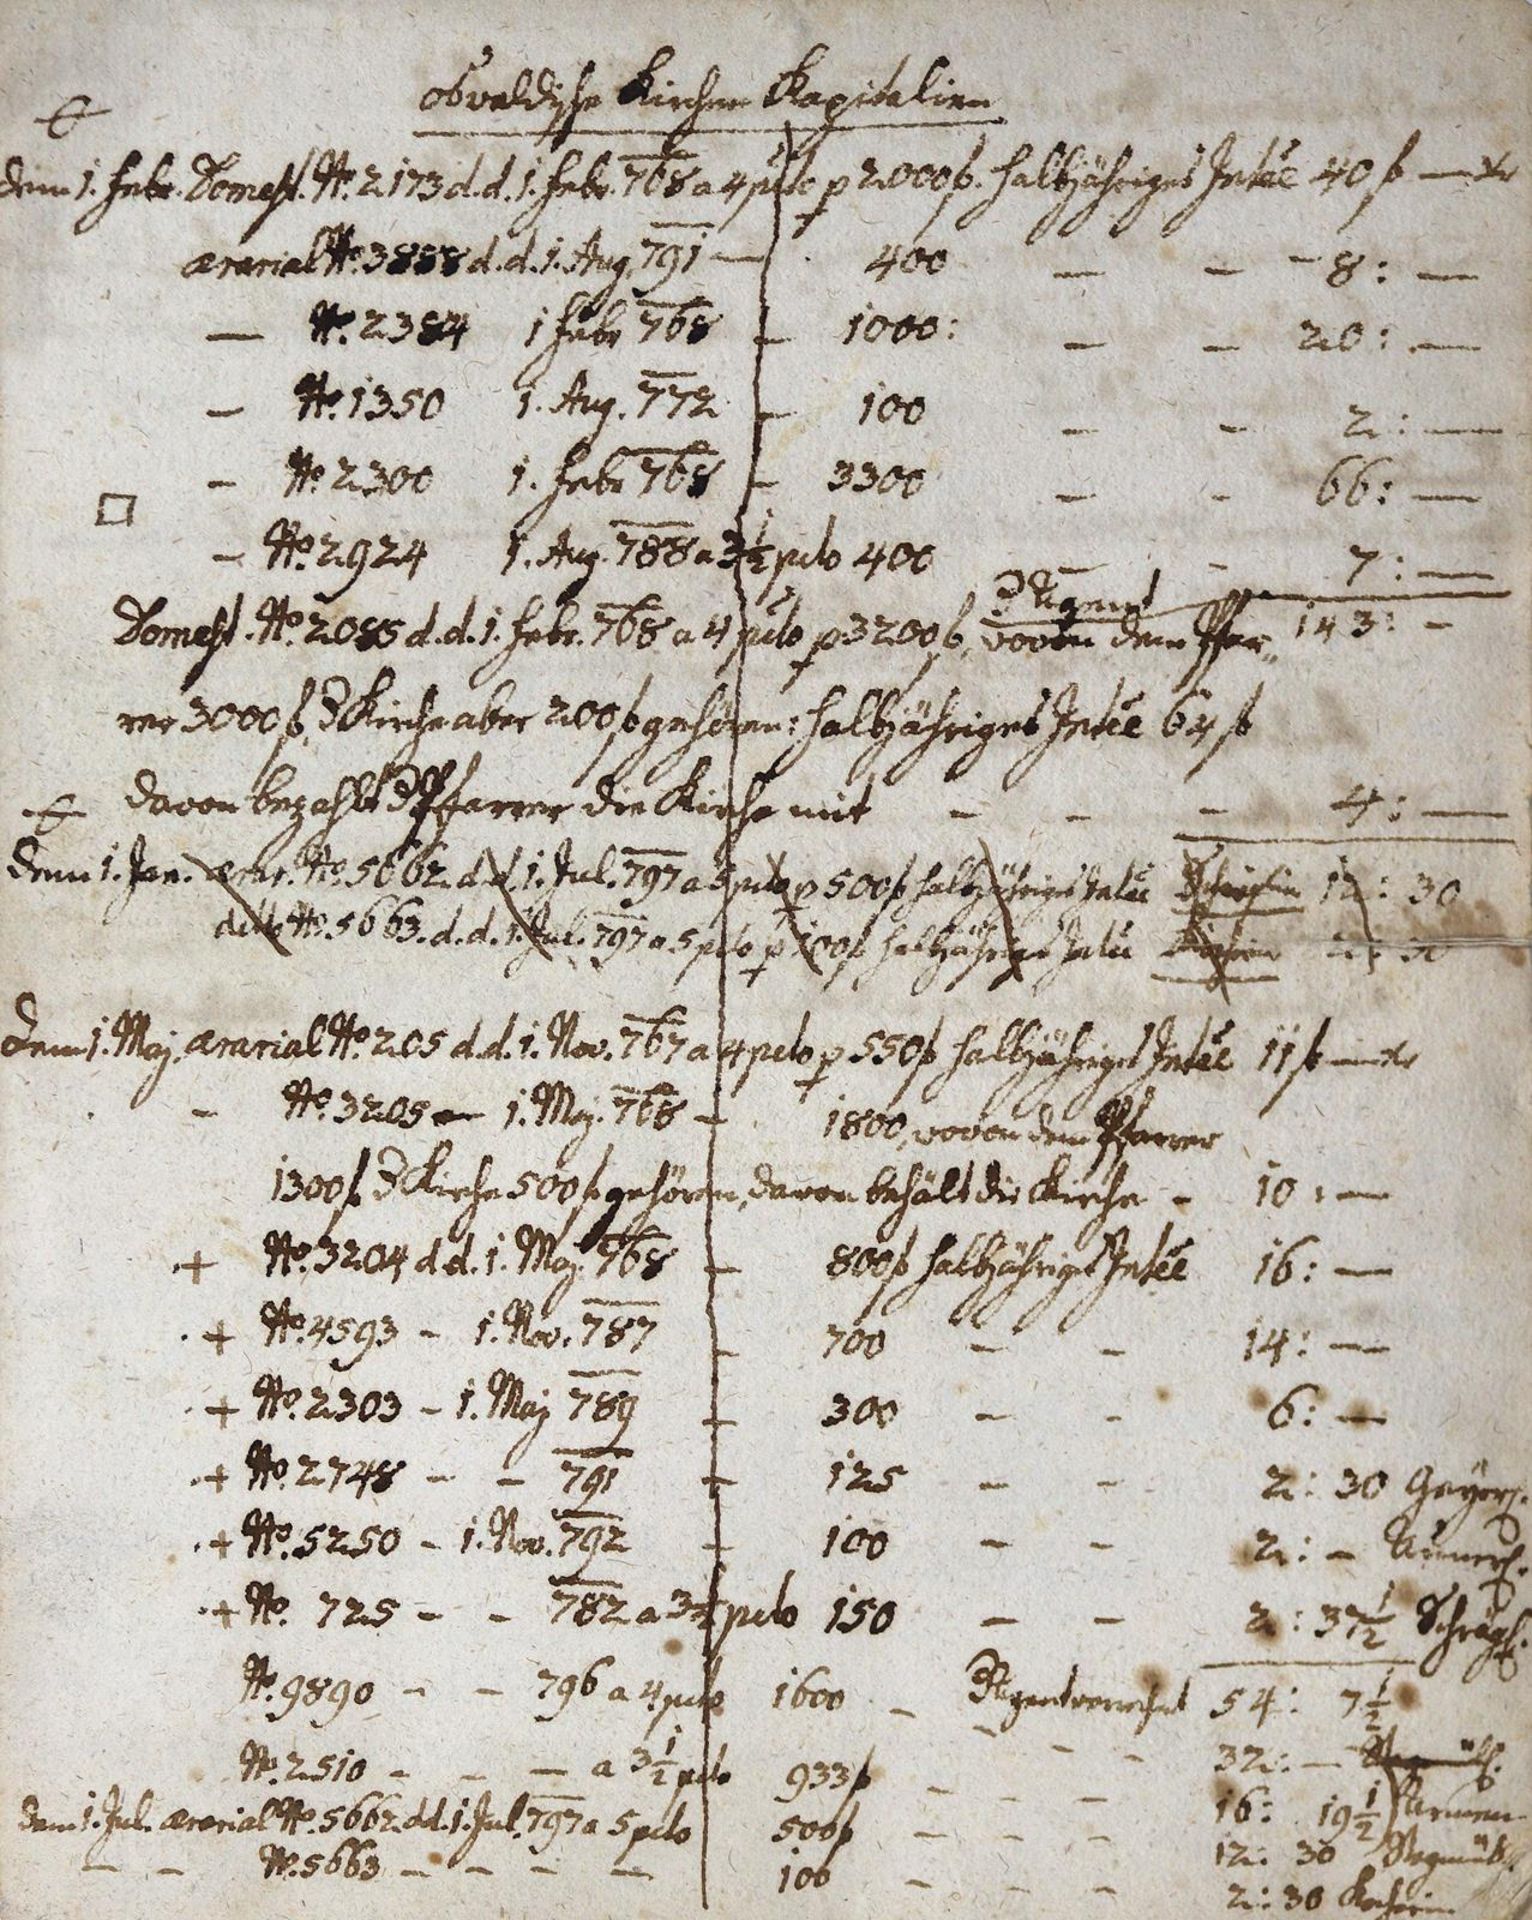 Osvaldische Kirchen Kapitalien
Dem 1. Febr. Domest. No. 2173 d. d. 1. Febr. 768 a 4 pcto p 2000 f. halbjähriges Intee 40 f — xr
ærarial No. 3888 d. d. 1. Aug. 791 — 400 — - - 8: —
— No. 2384 1 Febr 768 - 1000: — - 20: —
— No. 1350 1. Aug. 772 - 100 — - 2: —
- No. 2300 1. Febr 768 - 3300 — - 66: —
- No. 2924 1. Aug. 788 a 3 1/2 pcto 400 - - 7: —
Domest. No. 2085 d. d. 1. Febr. 768 a 4 pcto p 3200 f, wovon dem Pfar„ 143: -
rer 3000 f, d Kirche aber 200 f gehören: halbjähriges Intee 64 f
davon bezahlt d Pfarrer die Kirche mit - - - 4: —
Dem 1. Jan. ærar. No. 5662 d. d. 1. Jul. 797 a 5 pcto p 500 f halbjähriges Intee 12: 30
detto No. 5663. d. d. 1. Jul. 797 a 5 pcto p 100 f halbjähriges Intee 2: 30
Dem 1. Maj. ærarial No. 205 d. d. 1. Nov. 767 a 4 pcto p 550 f halbjähriges Intee 11 f — xr
- No. 3205 — 1. Maj. 768 - 1800, wovon dem Pfarrer
1300 f d Kirche 500 f gehören, davon behält die Kirche - 10: —
+ No. 3204 d d. 1. Maj. 768 - 800 f halbjähriges Intee 16: —
+ No. 4593 - 1. Nov. 787 - 700 - - 14: —
+ No. 2303 - 1. Maj 789 - 300 - - 6: —
+ No. 2748 - - 791 - 125 - - 2: 30
+ No. 5250 - 1. Nov. 792 - 100 - - 2: -
+ No. 725 - - 782 a 3 1/2 pcto 150 - - 2: 37 1/2
No. 9890 - - 796 a 4 pcto 1600 - 54: 7 1/2
No. 2510 - - — a 3 1/2 pcto 933 f - - - 32: —
Dem 1. Jul. ærarial No. 5662 d d. 1. Jul. 797 a 5 pcto 500 f - - - 16: 19 1/2
— - No. 5663 - - - — 100 - - - 12: 30
2: 30